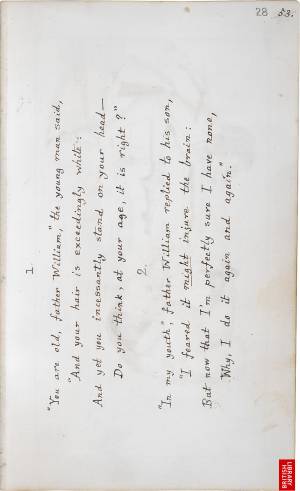 28 53.
1
"You are old, father William," the young man said,
"And your hair is exceedingly white:
And yet you incessantly stand on your head—
Do you think, at your age, it is right?"
2.
"In my youth," father William replied to his son,
"I feared it might injure the brain:
But now that I'm perfectly sure I have none,
Why, I do it again and again."
BRITISH
LIBRARY